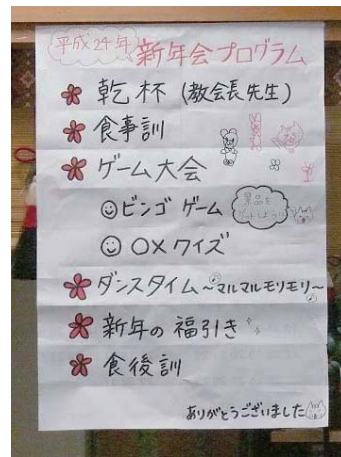 平成24年
新年会プログラム
乾杯 (教会長先生)
食事訓
ゲーム大会
ビンゴ ゲーム
景品を
ゲットしよう!!
○×クイズ
ダンスタイム～マルマルモリモリ～
新年の福引き
食後訓
ありがとうございました